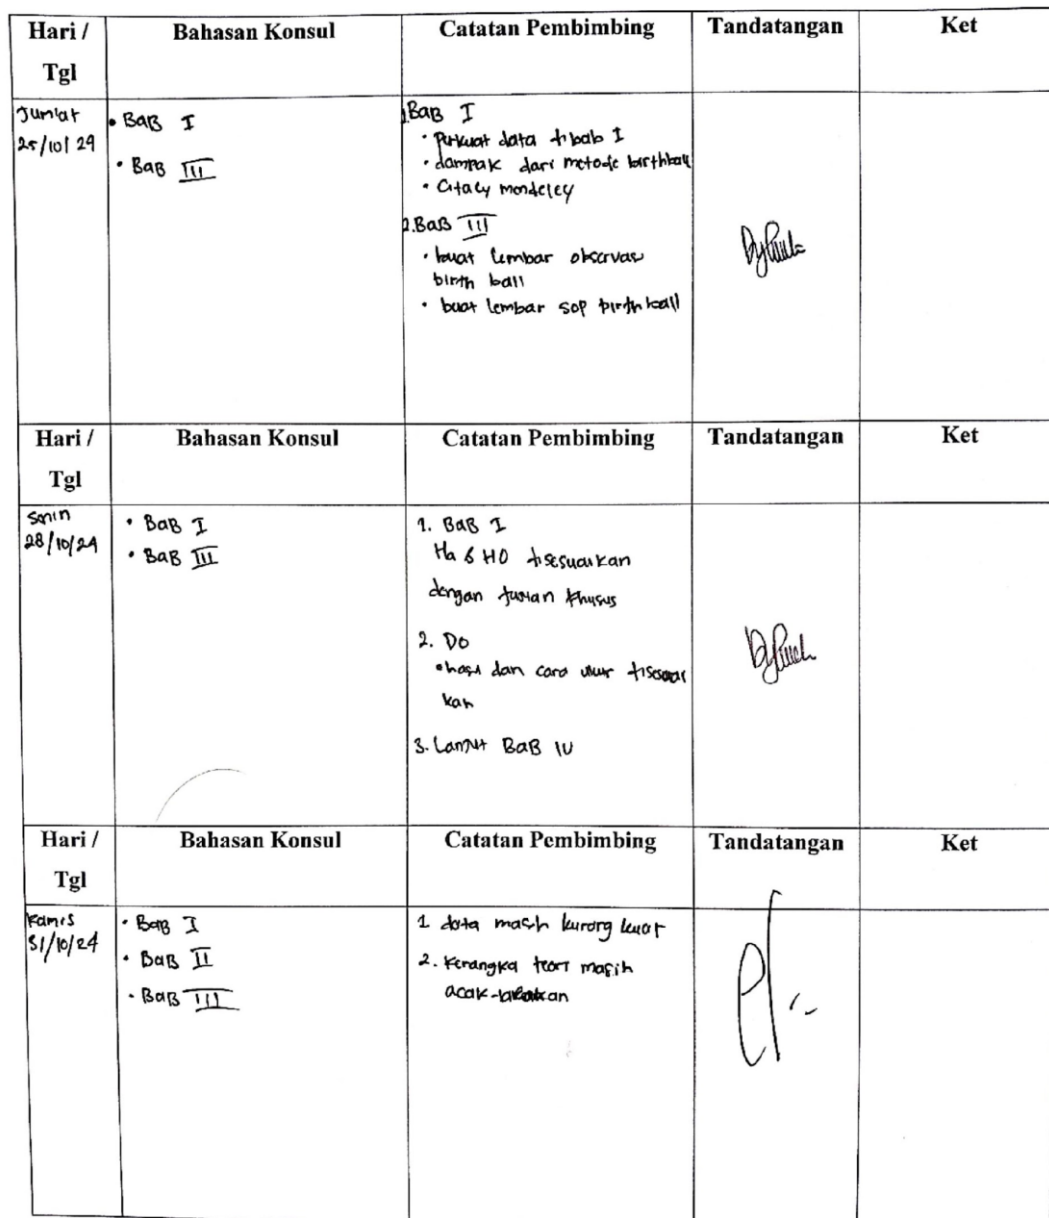 Hari / Bahasan Konsul Catatan Pembimbing Tandatangan Ket
Tgl
Jum'at
25/10/24
• BaB I
• BaB III
1. BaB I
• Perkuat data di bab I
• dampak dari metode birthball
• mendeley
2. BaB III
• buat lembar observasi
birth ball
• buat lembar sop birth ball
Hari / Bahasan Konsul Catatan Pembimbing Tandatangan Ket
Tgl
Senin
28/10/24
• BaB I
• BaB III
1. BaB I
Ha & HO disesuaikan
dengan tujuan khusus
2. DO
• hasil dan cara ukur disesuai
kan
3. Lanjut BaB IV
Hari / Bahasan Konsul Catatan Pembimbing Tandatangan Ket
Tgl
Kamis
31/10/24
• BaB I
• BaB II
• BaB III
1 data masih kurang kuat
2. Kerangka teori masih